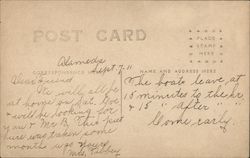 POST CARD
PLACE
STAMP
HERE
Alameda
Sept. 7. 11
CORRESPONDENCE
NAME AND ADDRESS HERE
Dear Friend
We will all be
at home on Sat. Eve
& will be looking for
you & Mr. A. This pict
ure was taken some
month ago. Yours
Mrs.
The boats leave at
15 minutes to the hr.
& 15 " after "
Come early.